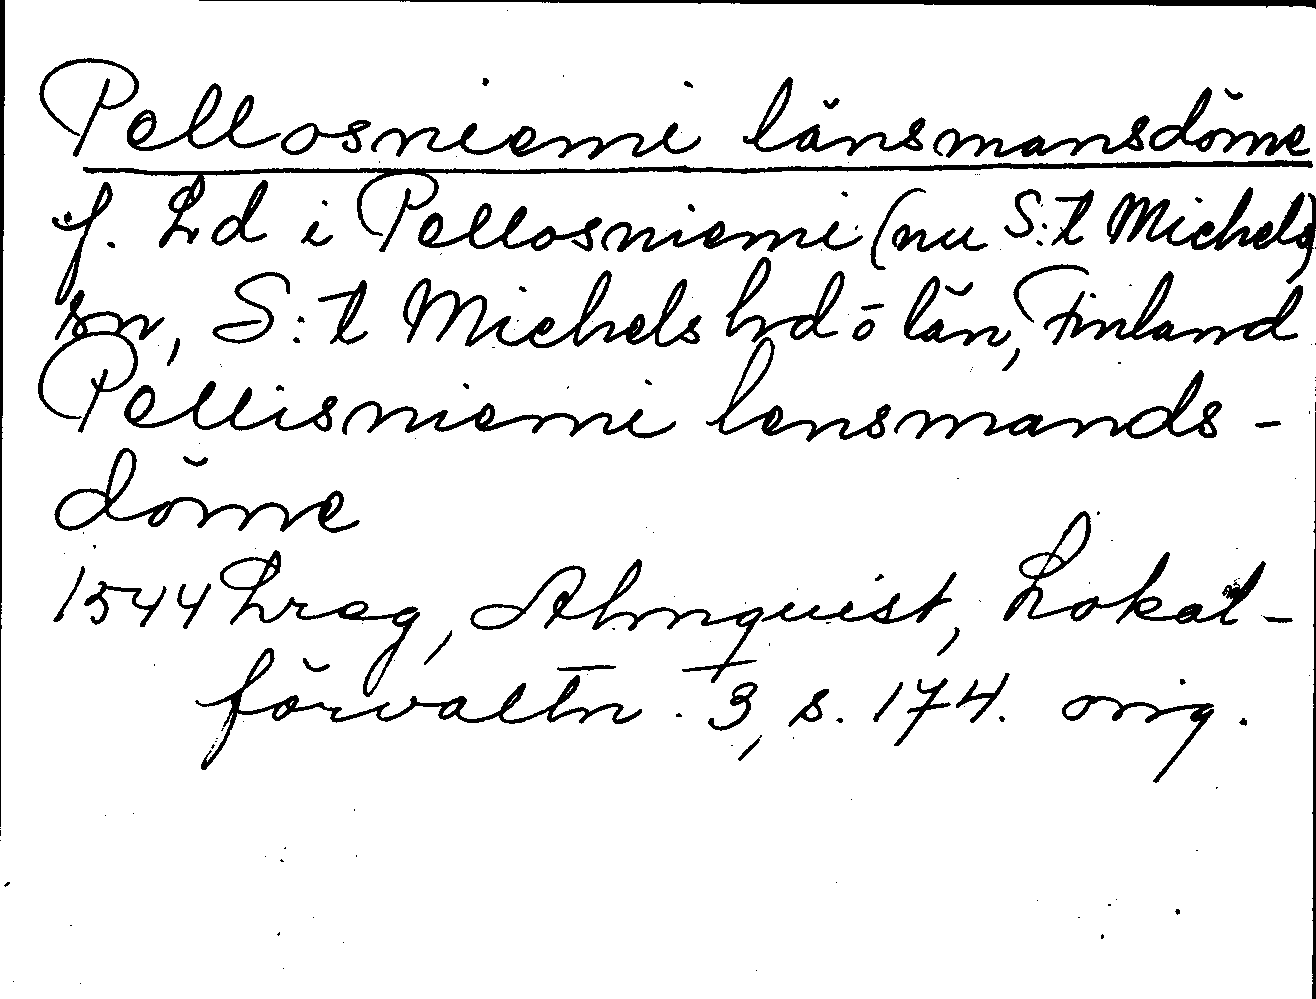 Pellosniemi länsmansdöme
f. Ld i Pellosniemi (nu S:t Michels)
sn, S:t Michels hd o län, Finland
Pellisniemi lensmands-
döme
1544 Lreg, Almquist, Lokal-
förvaltn. 3, s. 174. orig.